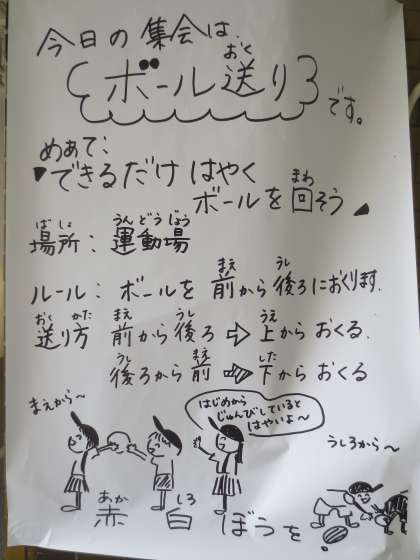 今日の集会は、
ボール送り
です。
めあて：
できるだけはやく
ボールを回そう
場所：運動場
ルール：ボールを前から後ろにおくります。
送り方 前から後ろ ⇨ 上からおくる。
後ろから前 ⇨ 下からおくる
まえから〜
はじめから
じゅんびしていると
はやいよ〜
うしろから〜
赤白ぼうを